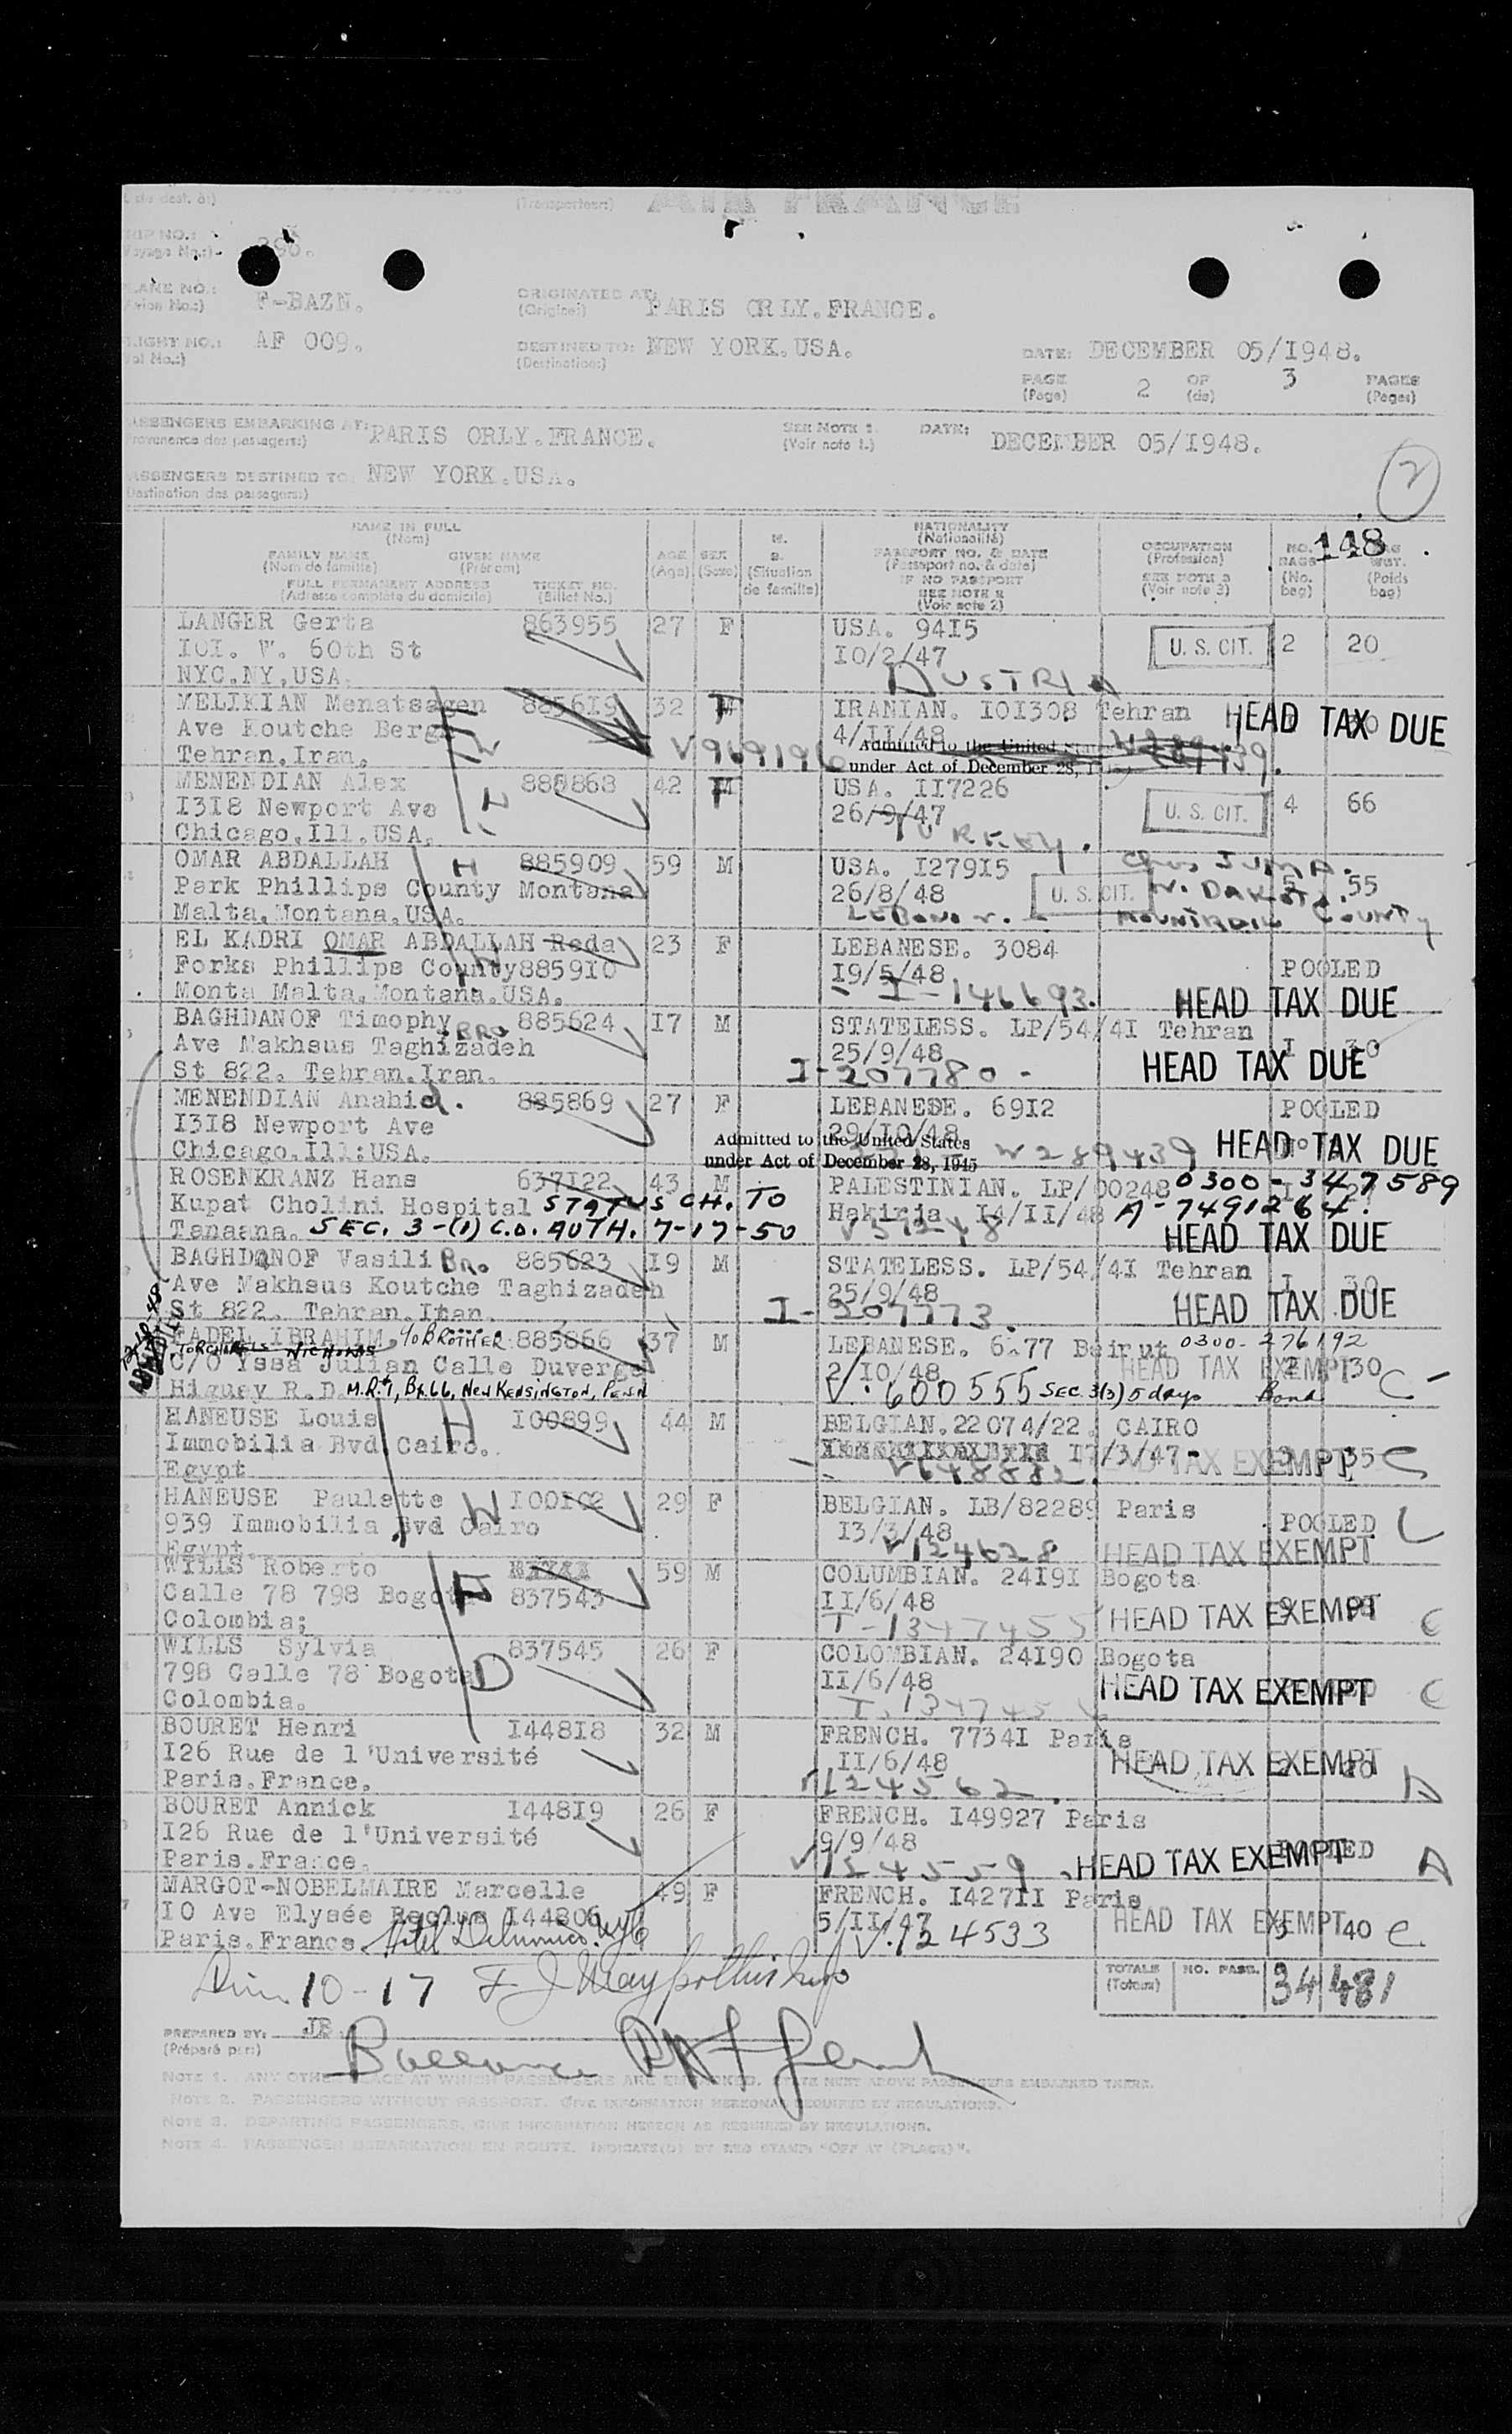 (Transporteur) AIR FRANCE
TRIP NO.: 396.
F-BAZN.
ORIGINATED AT: PARIS ORLY.FRANCE.
(Origine)
AF 009.
DESTINED TO: NEW YORK.USA.
(Destination:)
DATE: DECEMBER 05/I948.
PAGE 2 OF 3 PAGES
(Page) (de) (Pages)
PASSENGERS EMBARKING AT: PARIS ORLY.FRANCE.
(Provenance des passagers:)
SEE NOTE 1. DATE: DECEMBER 05/I948.
(Voir note 1.)
PASSENGERS DESTINED TO: NEW YORK.USA.
(Destination des passagers:)
2
148
NAME IN FULL
(Nom)
FAMILY NAME GIVEN NAME
(Nom de famille) (Prénom)
FULL PERMANENT ADDRESS TICKET NO.
(Adresse complète du domicile) (Billet No.)
AGE SEX
(Age) (Sexe) (Situation de famille)
NATIONALITY
(Nationalité)
PASSPORT NO. & DATE
(Passeport no. & date)
IF NO PASSPORT
SEE NOTE 2
(Voir note 2)
OCCUPATION
(Profession)
SEE NOTE 3
(Voir note 3)
NO. BAGS
(No. bag)
(Poids bag)
LANGER Gerta 863955 27 F USA. 94I5 U. S. CIT. 2 20
IOI. W. 60th St I0/2/47
NYC.NY.USA. AUSTRIA
MELIKIAN Menatsagen 885619 32 F IRANIAN. IOI308 Tehran HEAD TAX DUE
Ave Koutche Berge 4/II/48
Tehran.Iran. V969196 Admitted to the United States
under Act of December 28, 1945
MENENDIAN Alex 885868 42 M USA. II7226 U. S. CIT. 4 66
I3I8 Newport Ave 26/9/47
Chicago.Ill.USA. TURKEY.
OMAR ABDALLAH 885909 59 M USA. I279I5
Park Phillips County Montana 26/8/48 U. S. CIT. N. DAKOTA. 55
Malta.Montana.USA. MOUNTRAIL COUNTY
EL KADRI OMAR ABDALLAH Reda 23 F LEBANESE. 3084
Forks Phillips County 8859I0 I9/5/48 POOLED
Monta Malta.Montana.USA. I-146693. HEAD TAX DUE
BAGHDANOF Timophy BRO 885624 I7 M STATELESS. LP/54/4I Tehran
Ave Makhsus Taghizadeh 25/9/48 I 30
St 822. Tehran.Iran. I-207780- HEAD TAX DUE
MENENDIAN Anahid. 885869 27 F LEBANESE. 69I2 POOLED
I3I8 Newport Ave 29/I0/48
Chicago.Ill:USA. Admitted to the United States
under Act of December 28, 1945 289439 HEAD TAX DUE
ROSENKRANZ Hans 637I22 43 M PALESTINIAN. LP/00248 0300-347589
Kupat Cholini Hospital STATUS CH. TO Hakirja I4/II/48 A-7491264.
Tanaana. SEC. 3-(1) C.O. AUTH. 7-17-50 HEAD TAX DUE
BAGHDANOF Vasili BRO 885623 I9 M STATELESS. LP/54/4I Tehran
Ave Makhsus Koutche Taghizadeh 25/9/48 I 30
St 822. Tehran.Iran. I-207773. HEAD TAX DUE
FADEL IBRAHIM. c/o BROTHER 885866 37 M LEBANESE. 6.77 Beirut 0300-276192
C/O Yssa Julian Calle Duverge 2/I0/48 HEAD TAX EXEMPT 30 C
Higuey R.D. M.R.#1, Bx.66, NEW KENSINGTON, PENN V.600555 SEC 3(3) 5 days Bond
HANEUSE Louis H I00899 44 M BELGIAN.22074/22. CAIRO
Immobilia Bvd Cairo. I7/3/47- 35 C
Egypt HEAD TAX EXEMPT
HANEUSE Paulette 29 F BELGIAN. LB/82289 Paris
939 Immobilia Bvd Cairo I3/3/48 POOLED
Egypt. V124628 HEAD TAX EXEMPT
WILLS Roberto 59 M COLUMBIAN. 24I9I Bogota
Calle 78 798 Bogota 837543 II/6/48 HEAD TAX EXEMPT C
Colombia; I-1347455
WILLS Sylvia 837545 26 F COLOMBIAN. 24I90 Bogota
798 Calle 78 Bogota D II/6/48 HEAD TAX EXEMPT C
Colombia.
BOURET Henri I448I8 32 M FRENCH. 7734I Paris
I26 Rue de l'Université II/6/48 HEAD TAX EXEMPT A
Paris.France. V124562.
BOURET Annick I448I9 26 F FRENCH. I49927 Paris
I26 Rue de l'Université 9/9/48 POOLED
Paris.France. V124559. HEAD TAX EXEMPT A
MARGOT-NOBELMAIRE Marcelle 49 F FRENCH. I427II Paris
I0 Ave Elysée Reclus I44806 5/II/47 HEAD TAX EXEMPT 40 C
Paris.France. Hotel Delmonico. NYC V.124533
10-17
TOTALS NO. PASS. 34 481
(Totaux)
PREPARED BY: JB.
(Préparé par:)
NOTE 1. ANY OTHER PLACE AT WHICH PASSENGERS ARE EMBARKED. STATE NEXT ABOVE PASSENGERS EMBARKED THERE.
NOTE 2. PASSENGERS WITHOUT PASSPORT. GIVE INFORMATION HEREON AS REQUIRED BY REGULATIONS.
NOTE 3. DEPARTING PASSENGERS, GIVE INFORMATION HEREON AS REQUIRED BY REGULATIONS.
NOTE 4. PASSENGER DEBARKATION EN ROUTE. INDICATE(D) BY RED STAMP "OFF AT (PLACE)".